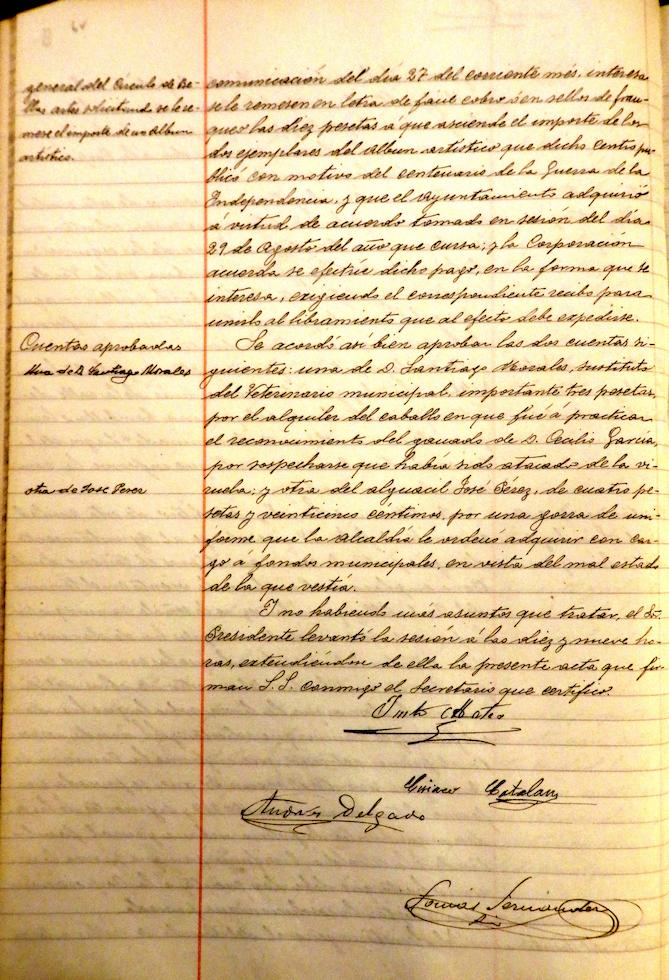 general del Círculo de Be-
llas artes solicitando se le re-
mese el importe de un Album
artístico.
comunicación del día 27 del corriente mes, interesa
se le remesen en letra de facil cobro ó en sellos de fran-
queo las diez pesetas á que asciende el importe de los
dos ejemplares del album artístico que dicho centro pu-
blicó con motivo del centenario de la Guerra de la
Independencia, y que el Ayuntamiento adquirió
á virtud de acuerdo tomado en sesion del día
29 de Agosto del año que cursa; y la Corporación
acuerda se efectúe dicho pago, en la forma que se
interesa, exigiendo el correspondiente recibo para
unirlo al libramiento que al efecto debe expedirse.
Cuentas aprobadas
Una de D. Santiago Morales
Se acordó asi bien aprobar las dos cuentas si-
guientes: una de D. Santiago Morales, sustituto
del Veterinario municipal, importante tres pesetas,
por el alquiler del caballo en que fué á practicar
el reconocimiento del ganado de D. Cecilio García,
por sospecharse que había sido atacado de la vi-
ruela; y otra del alguacil José Pérez, de cuatro pe-
setas y veinticinco céntimos, por una gorra de uni-
forme que la Alcaldía le ordenó adquirir con car-
go á fondos municipales, en vista del mal estado
de la que vestía.
otra de José Perez
Y no habiendo más asuntos que tratar, el Sr.
Presidente levantó la sesion á las diez y nueve ho-
ras, extendiéndose de ella la presente acta que fir-
man S.S. conmigo el Secretario que certifico.
Justo Mateo
Ciriaco Catalan
Andrés Delgado
Tomás Fernandez